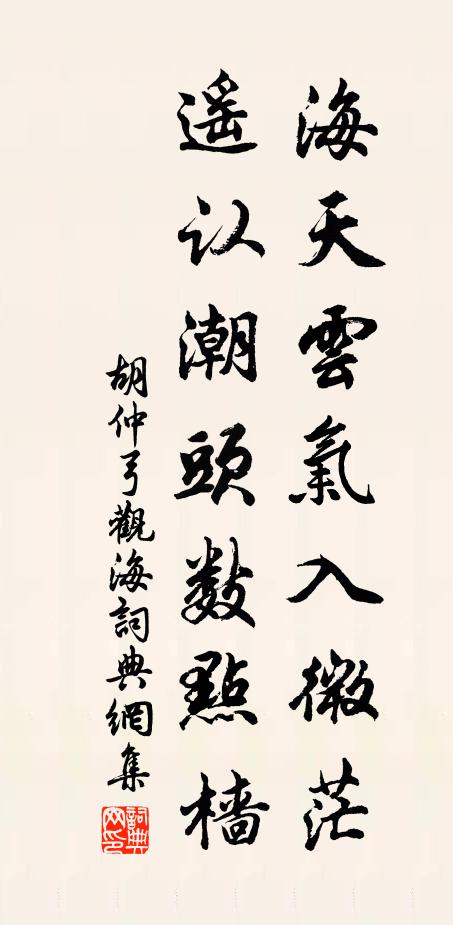 海天雲氣入微茫
遥认潮頭数點檣
胡仲弓觀海詞典網集
詞典网印